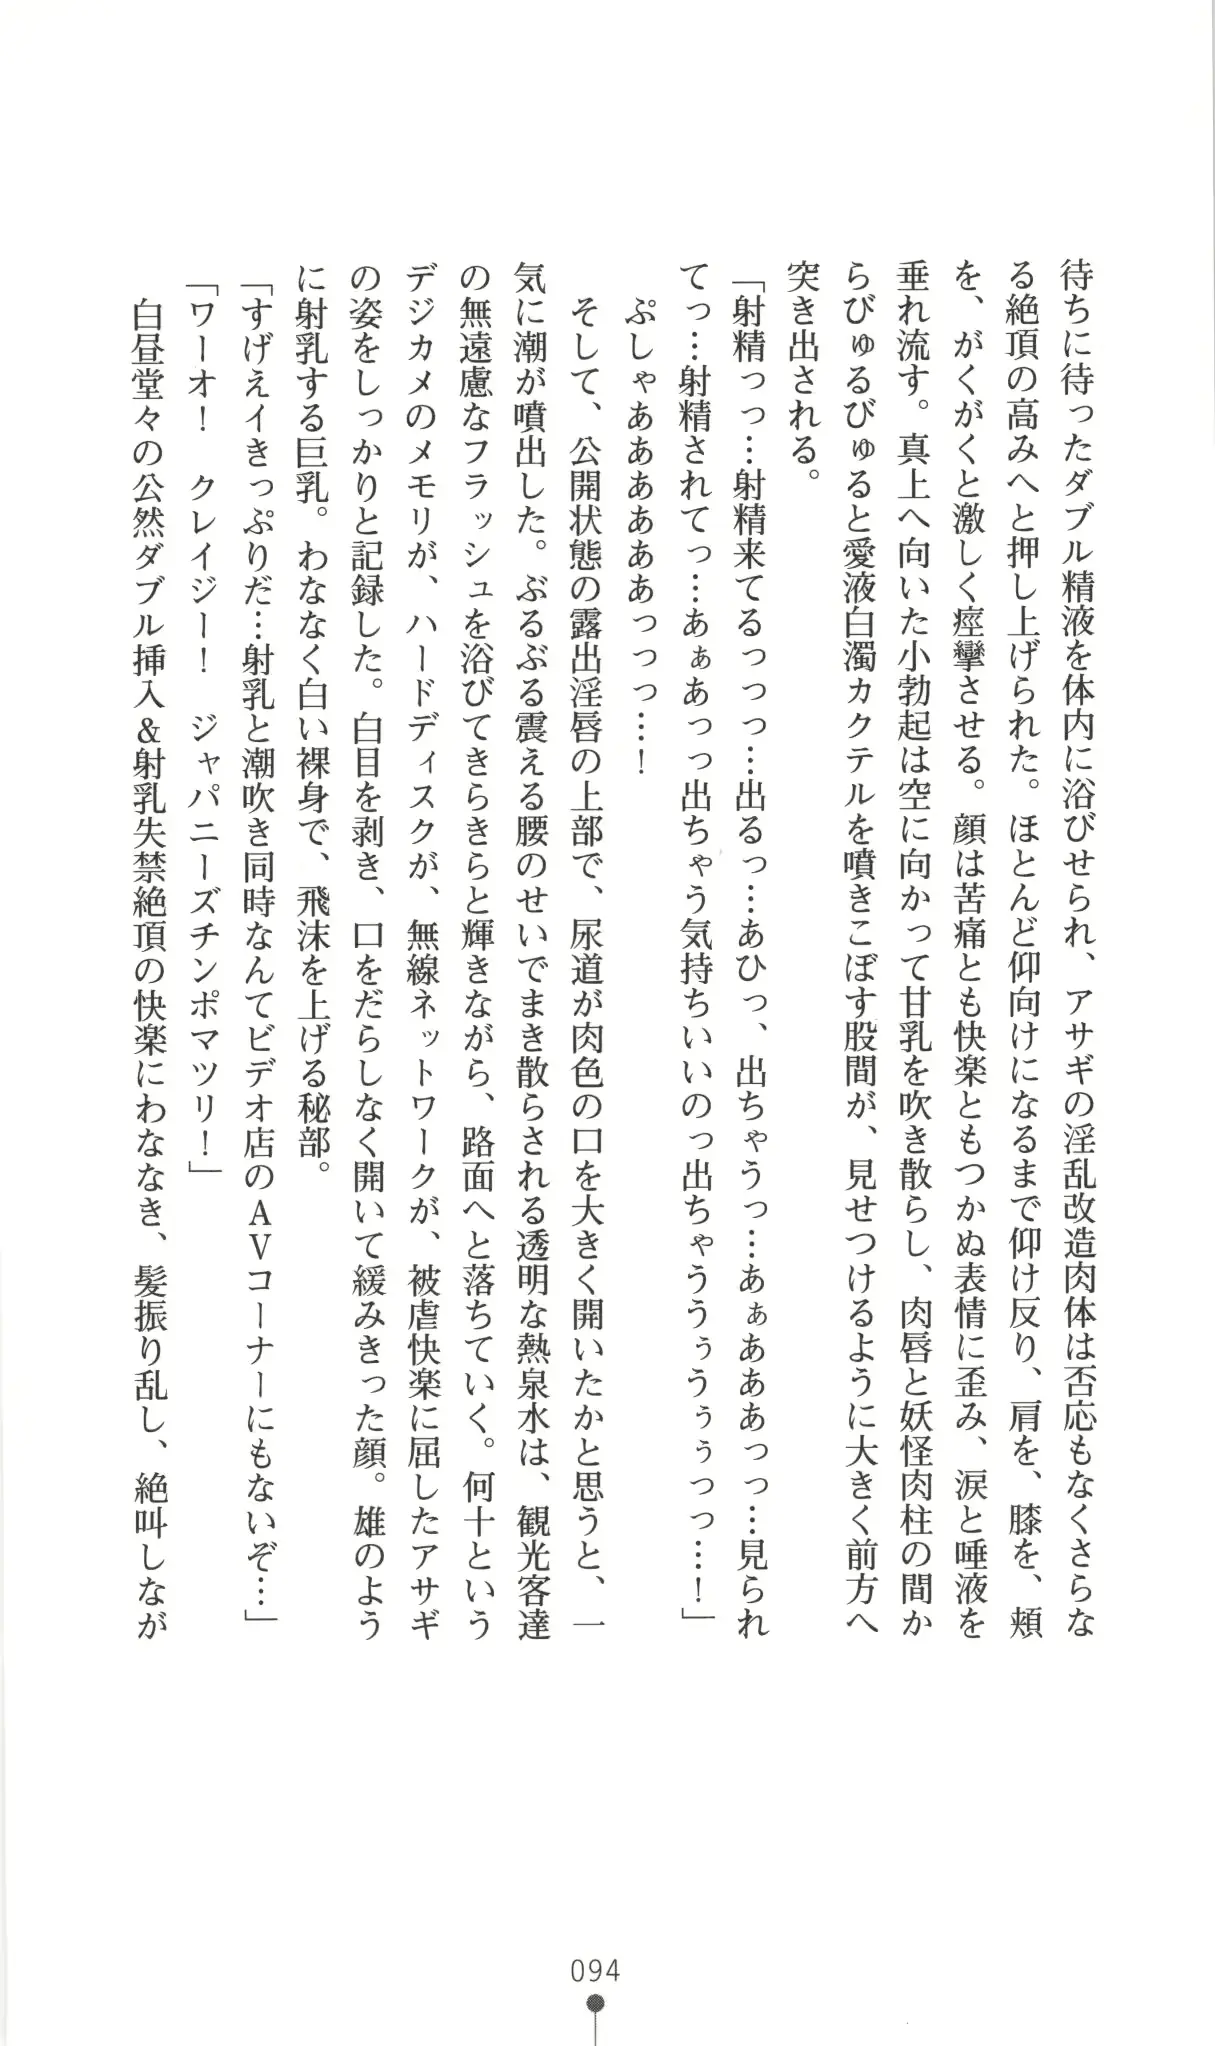 待ちに待ったダブル精液を体内に浴びせられ、アサギの淫乱改造肉体は否応もなくさらな
る絶頂の高みへと押し上げられた。ほとんど仰向けになるまで仰け反り、肩を、膝を、頬
を、がくがくと激しく痙攣させる。顔は苦痛とも快楽ともつかぬ表情に歪み、涙と唾液を
垂れ流す。真上へ向いた小勃起は空に向かって甘乳を吹き散らし、肉唇と妖怪肉柱の間か
らびゅるびゅると愛液白濁カクテルを噴きこぼす股間が、見せつけるように大きく前方へ
突き出される。
「射精っっ…射精来てるっっっ…出るっ…あひっ、出ちゃうっ…あぁあああっっ…見られ
てっ…射精されてっ…あぁあっっ出ちゃう気持ちいいのっ出ちゃううぅうぅぅっっ…！」
ぷしゃああああああっっっ…！
そして、公開状態の露出淫唇の上部で、尿道が肉色の口を大きく開いたかと思うと、一
気に潮が噴出した。ぶるぶる震える腰のせいでまき散らされる透明な熱泉水は、観光客達
の無遠慮なフラッシュを浴びてきらきらと輝きながら、路面へと落ちていく。何十という
デジカメのメモリが、ハードディスクが、無線ネットワークが、被虐快楽に屈したアサギ
の姿をしっかりと記録した。白目を剥き、口をだらしなく開いて緩みきった顔。雄のよう
に射乳する巨乳。わななく白い裸身で、飛沫を上げる秘部。
「すげえイきっぷりだ…射乳と潮吹き同時なんてビデオ店のＡＶコーナーにもないぞ…」
「ワーオ！　クレイジー！　ジャパニーズチンポマツリ！」
白昼堂々の公然ダブル挿入＆射乳失禁絶頂の快楽にわななき、髪振り乱し、絶叫しなが
094